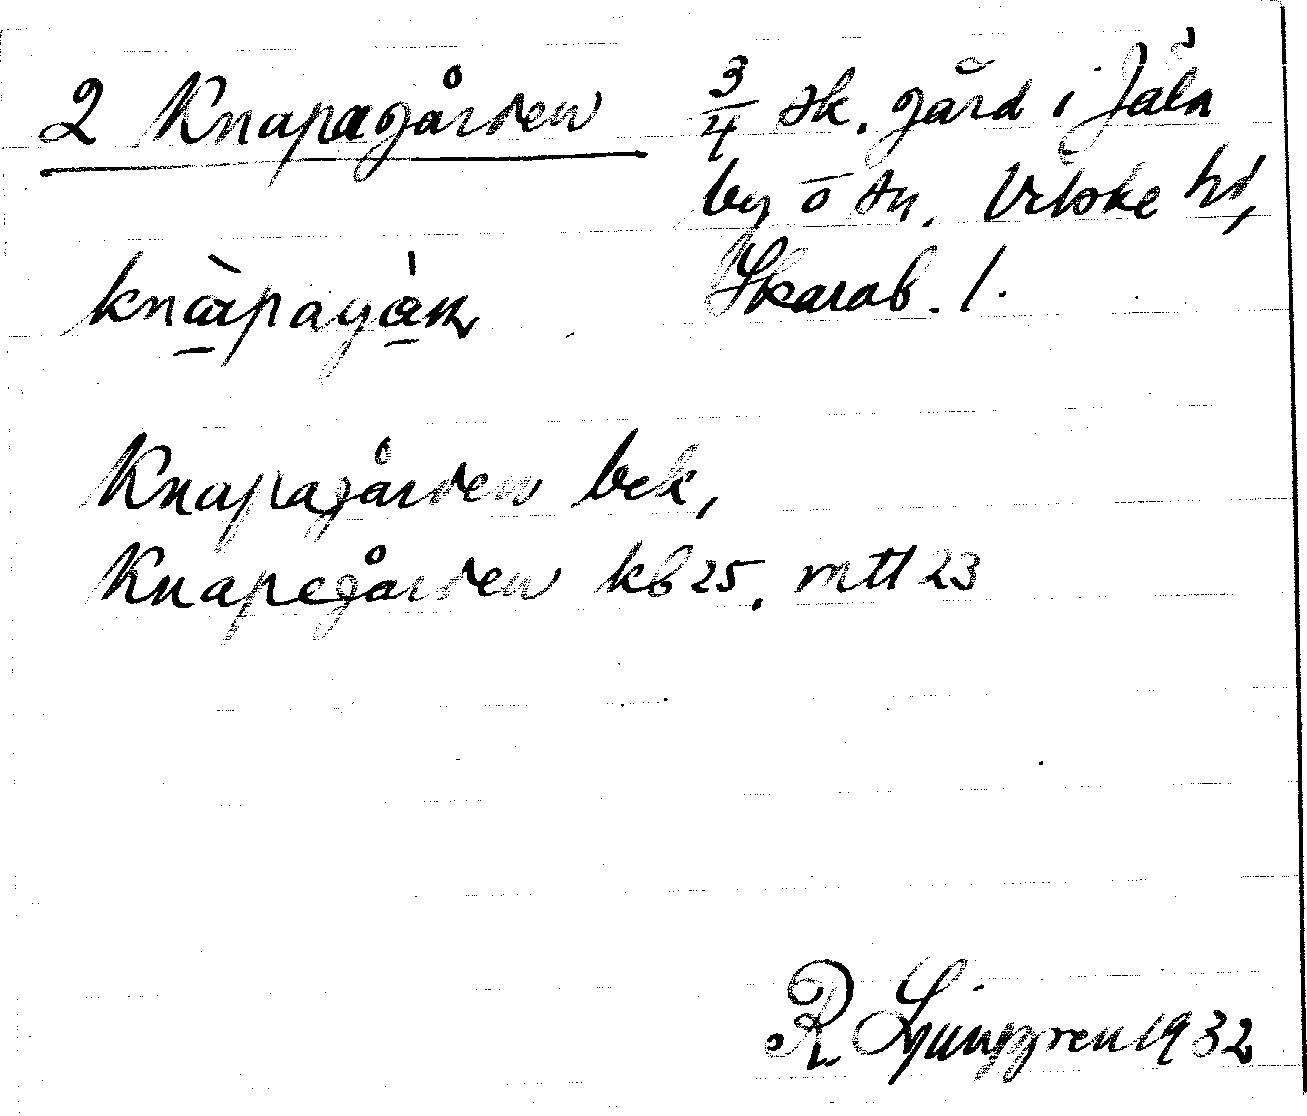 2 Knapagården
3/4 sk. gård i Jäla
by o sn. Vilske hd,
Skarab. l.
knàpagån
Knapagården bek,
Knapegården kb 25, mtl 23
R Ljunggren 1932